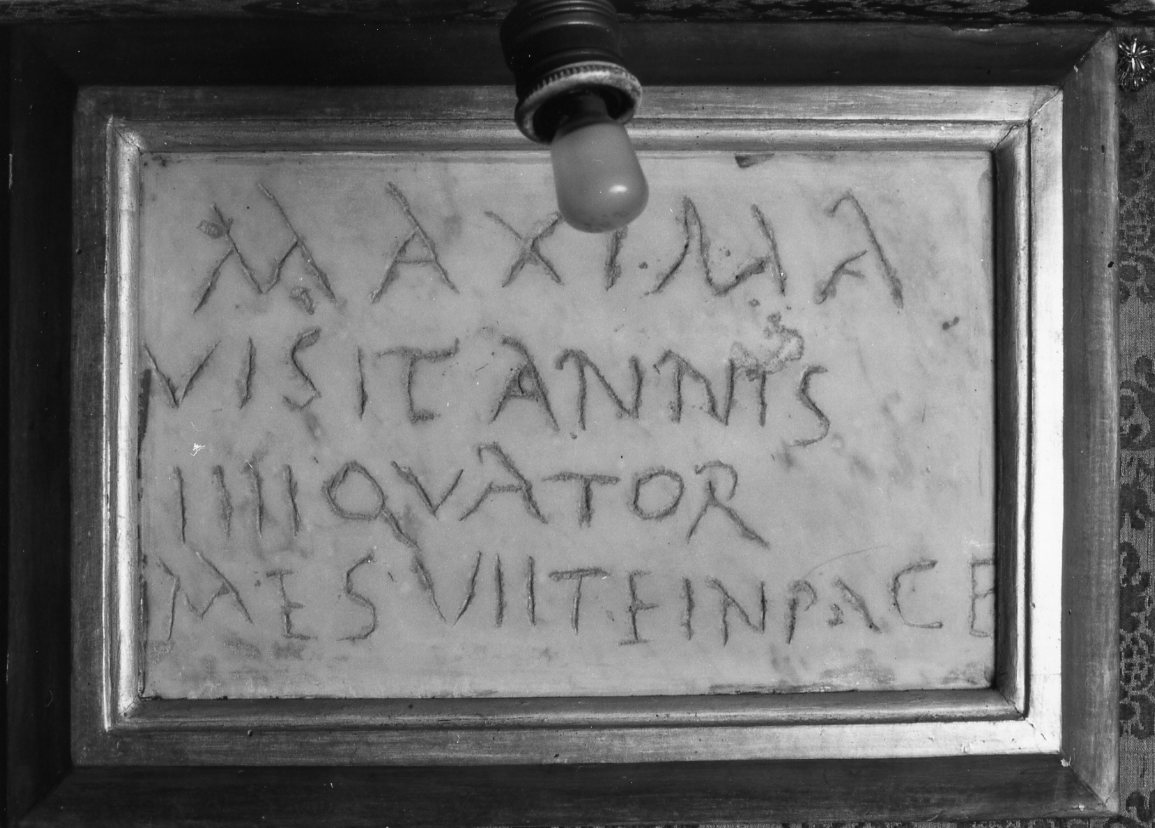 MAXIMA
VISIT ANNIS
IIII QVATOR
MES VII TE IN PACE